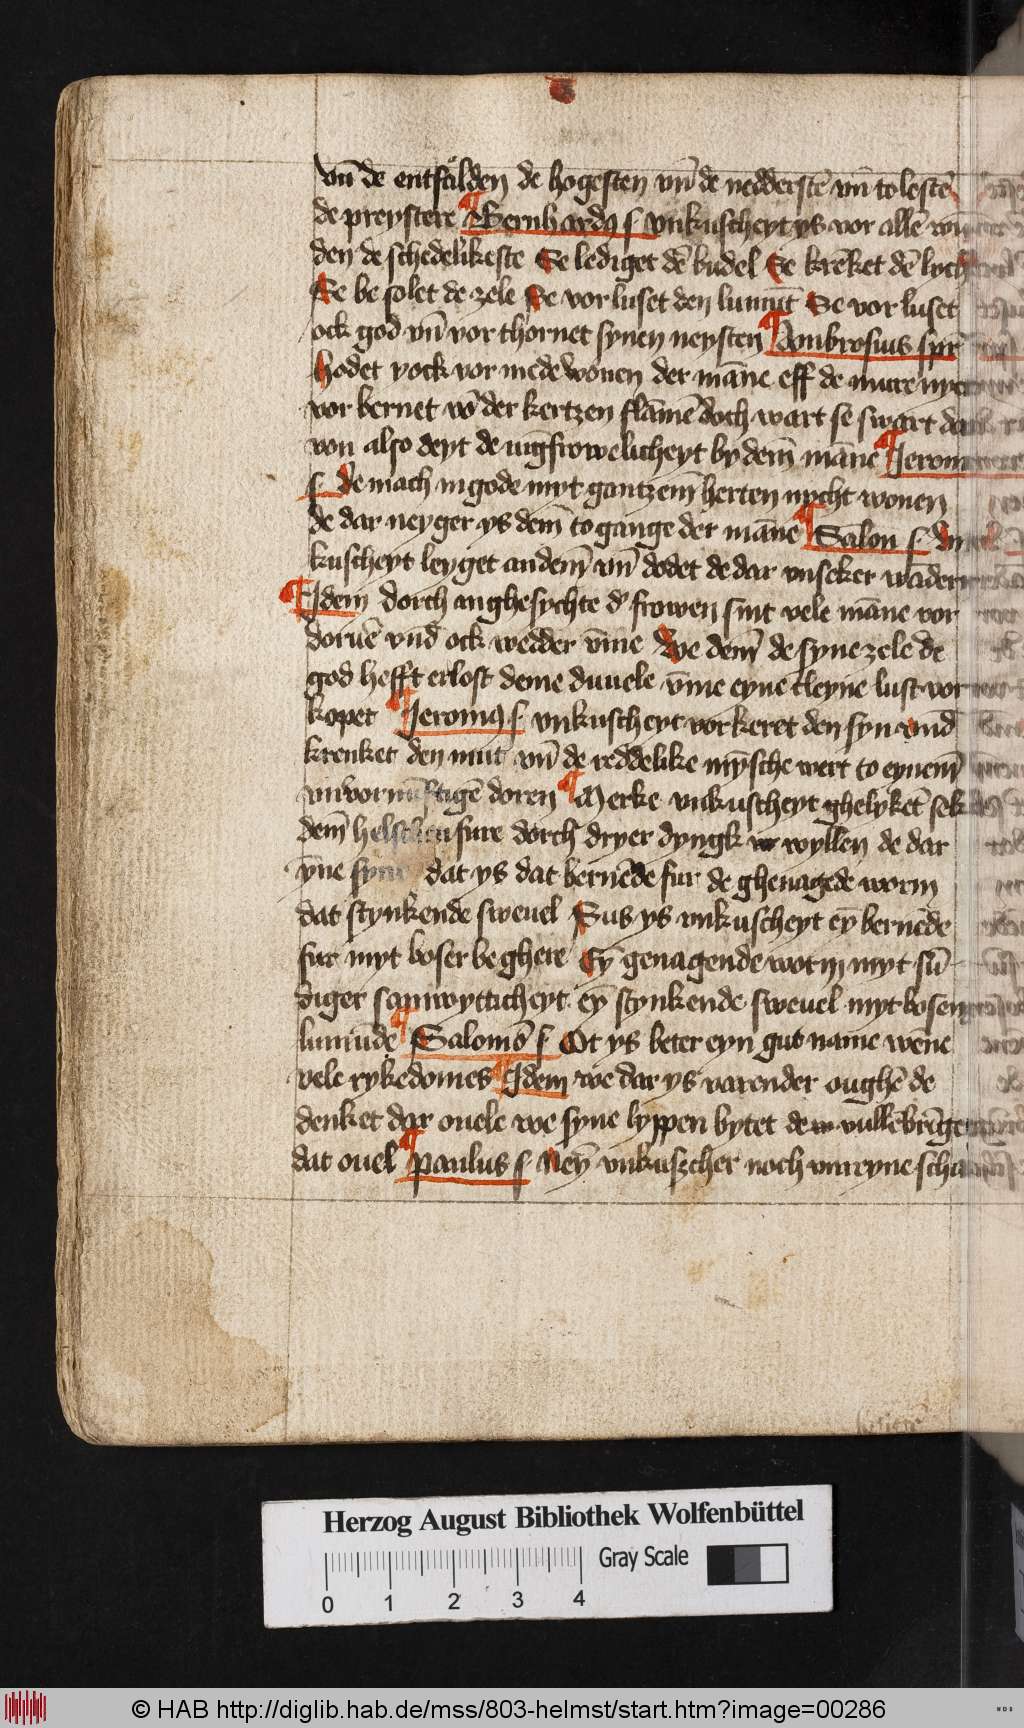 vn̄ de entfäldeṅ de hogesten vn̄ de nedderstē vn̄ to lestē
de preystere ¶ Bernhardꝯ ſ vnkuscheyt ys vor allē
den de schedelikeste Se lediget dē budel Se krēket dē lych
Se be solet de zele Se vor luset den lumūt Se vor luset
ock god vn̄ vor thornet synen neysten ¶ Ambrosius spr
hodet yock vor mede wonen der māne eff de
vor bernet vō der kertzen flāmē doch wart se swart
von also deyt de iūgfrowelicheyt by dem̄ māne ¶ Jeroni
ſ de mach in gode myt gantzem̄ herten nycht wonen
de dar neyger ys dem̄ to gange der māne ¶ Salon ſ Vn
kuscheyt leyget an dem̄ vn̄ dodet de dar vnseker
¶ Idem dorch anghesychte d' frowen sint vele māne vor
doruē vnd ock wedder vm̄e We dem̄ de syne zele de
god hefft erlost deme duuele vm̄e eyne cleyne lust vor
kopet ¶ Jeronīꝯ ſ vnkuscheyt vorkeret den syn vnd
krenket den mut vn̄ de reddelike mȳsche wert to eynem̄
vnvornūftigē doren ¶ Merke vnkuscheyt ghelyket sek
dem̄ helschen fure dorch dryer dyngk wyllen de dar
ȳne synt dat ys dat bernēde fur de ghenagede worm
dat stynkende sweuel Sus ys vnkuscheyt eȳ bernēde
fur myt boser beghere Eȳ genagende worm myt sū
diger samwytticheyt eȳ stynkende sweuel myt bosen
lumūde ¶ Salomō ſ Ot ys beter eyn gut name wēne
vele rykedomes ¶ Idem we dar ys varender oughē de
denket dar ouele we syne lyppen bytet de vullēbrīget
dat ouel ¶ paulus ſ Neȳ vnkuszcher noch vnreyne
Herzog August Bibliothek Wolfenbüttel
0 1 2 3 4 Gray Scale
© HAB http://diglib.hab.de/mss/803-helmst/start.htm?image=00286